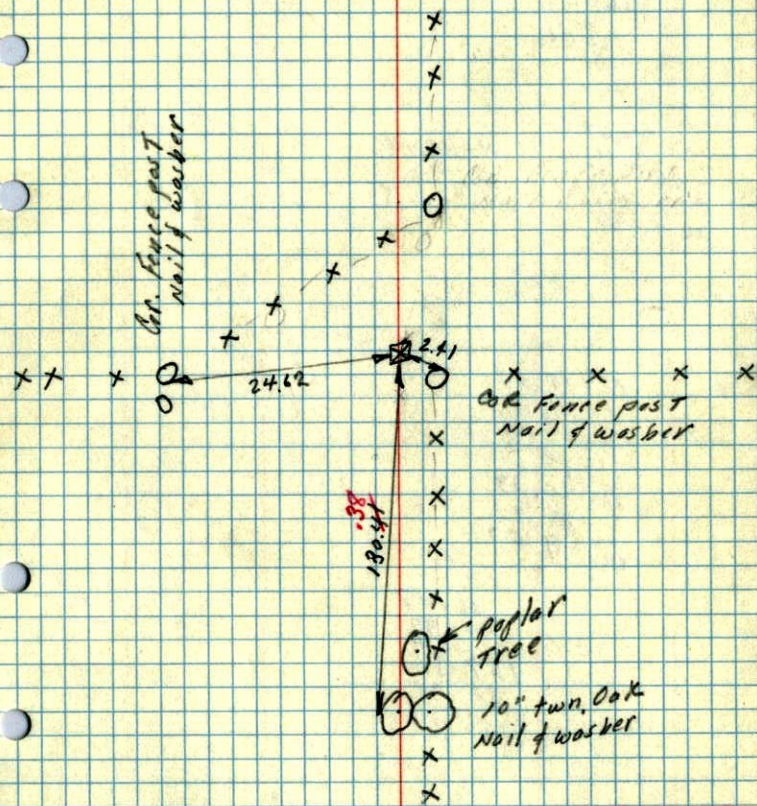 Cor. Fence post
Nail & washer
2.41
24.62
Cor Fence post
Nail & washer
.38
130.41
poplar
Tree
10" twn. Oak
Nail & washer